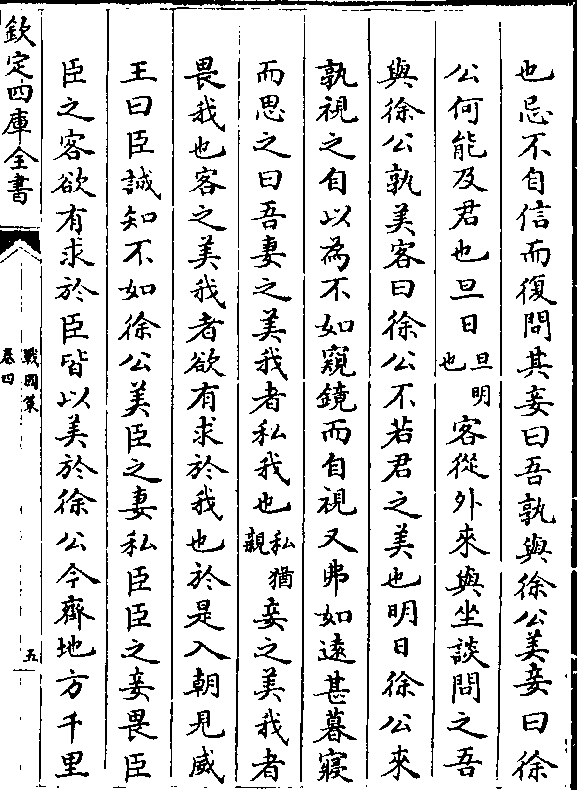 也忌不自信而復問其妾曰吾孰與徐公美妾曰徐
公何能及君也旦日旦明也客從外來與坐談問之吾
與徐公孰美客曰徐公不若君之美也明日徐公來
孰視之自以為不如窺鏡而自視又弗如遠甚暮寢
而思之曰吾妻之美我者私我也私猶親妾之美我者
畏我也客之美我者欲有求於我也於是入朝見威
王曰臣誠知不如徐公美臣之妻私臣臣之妾畏臣
臣之客欲有求於臣皆以美於徐公今齊地方千里
欽定四庫全書
戰國策
卷四
五